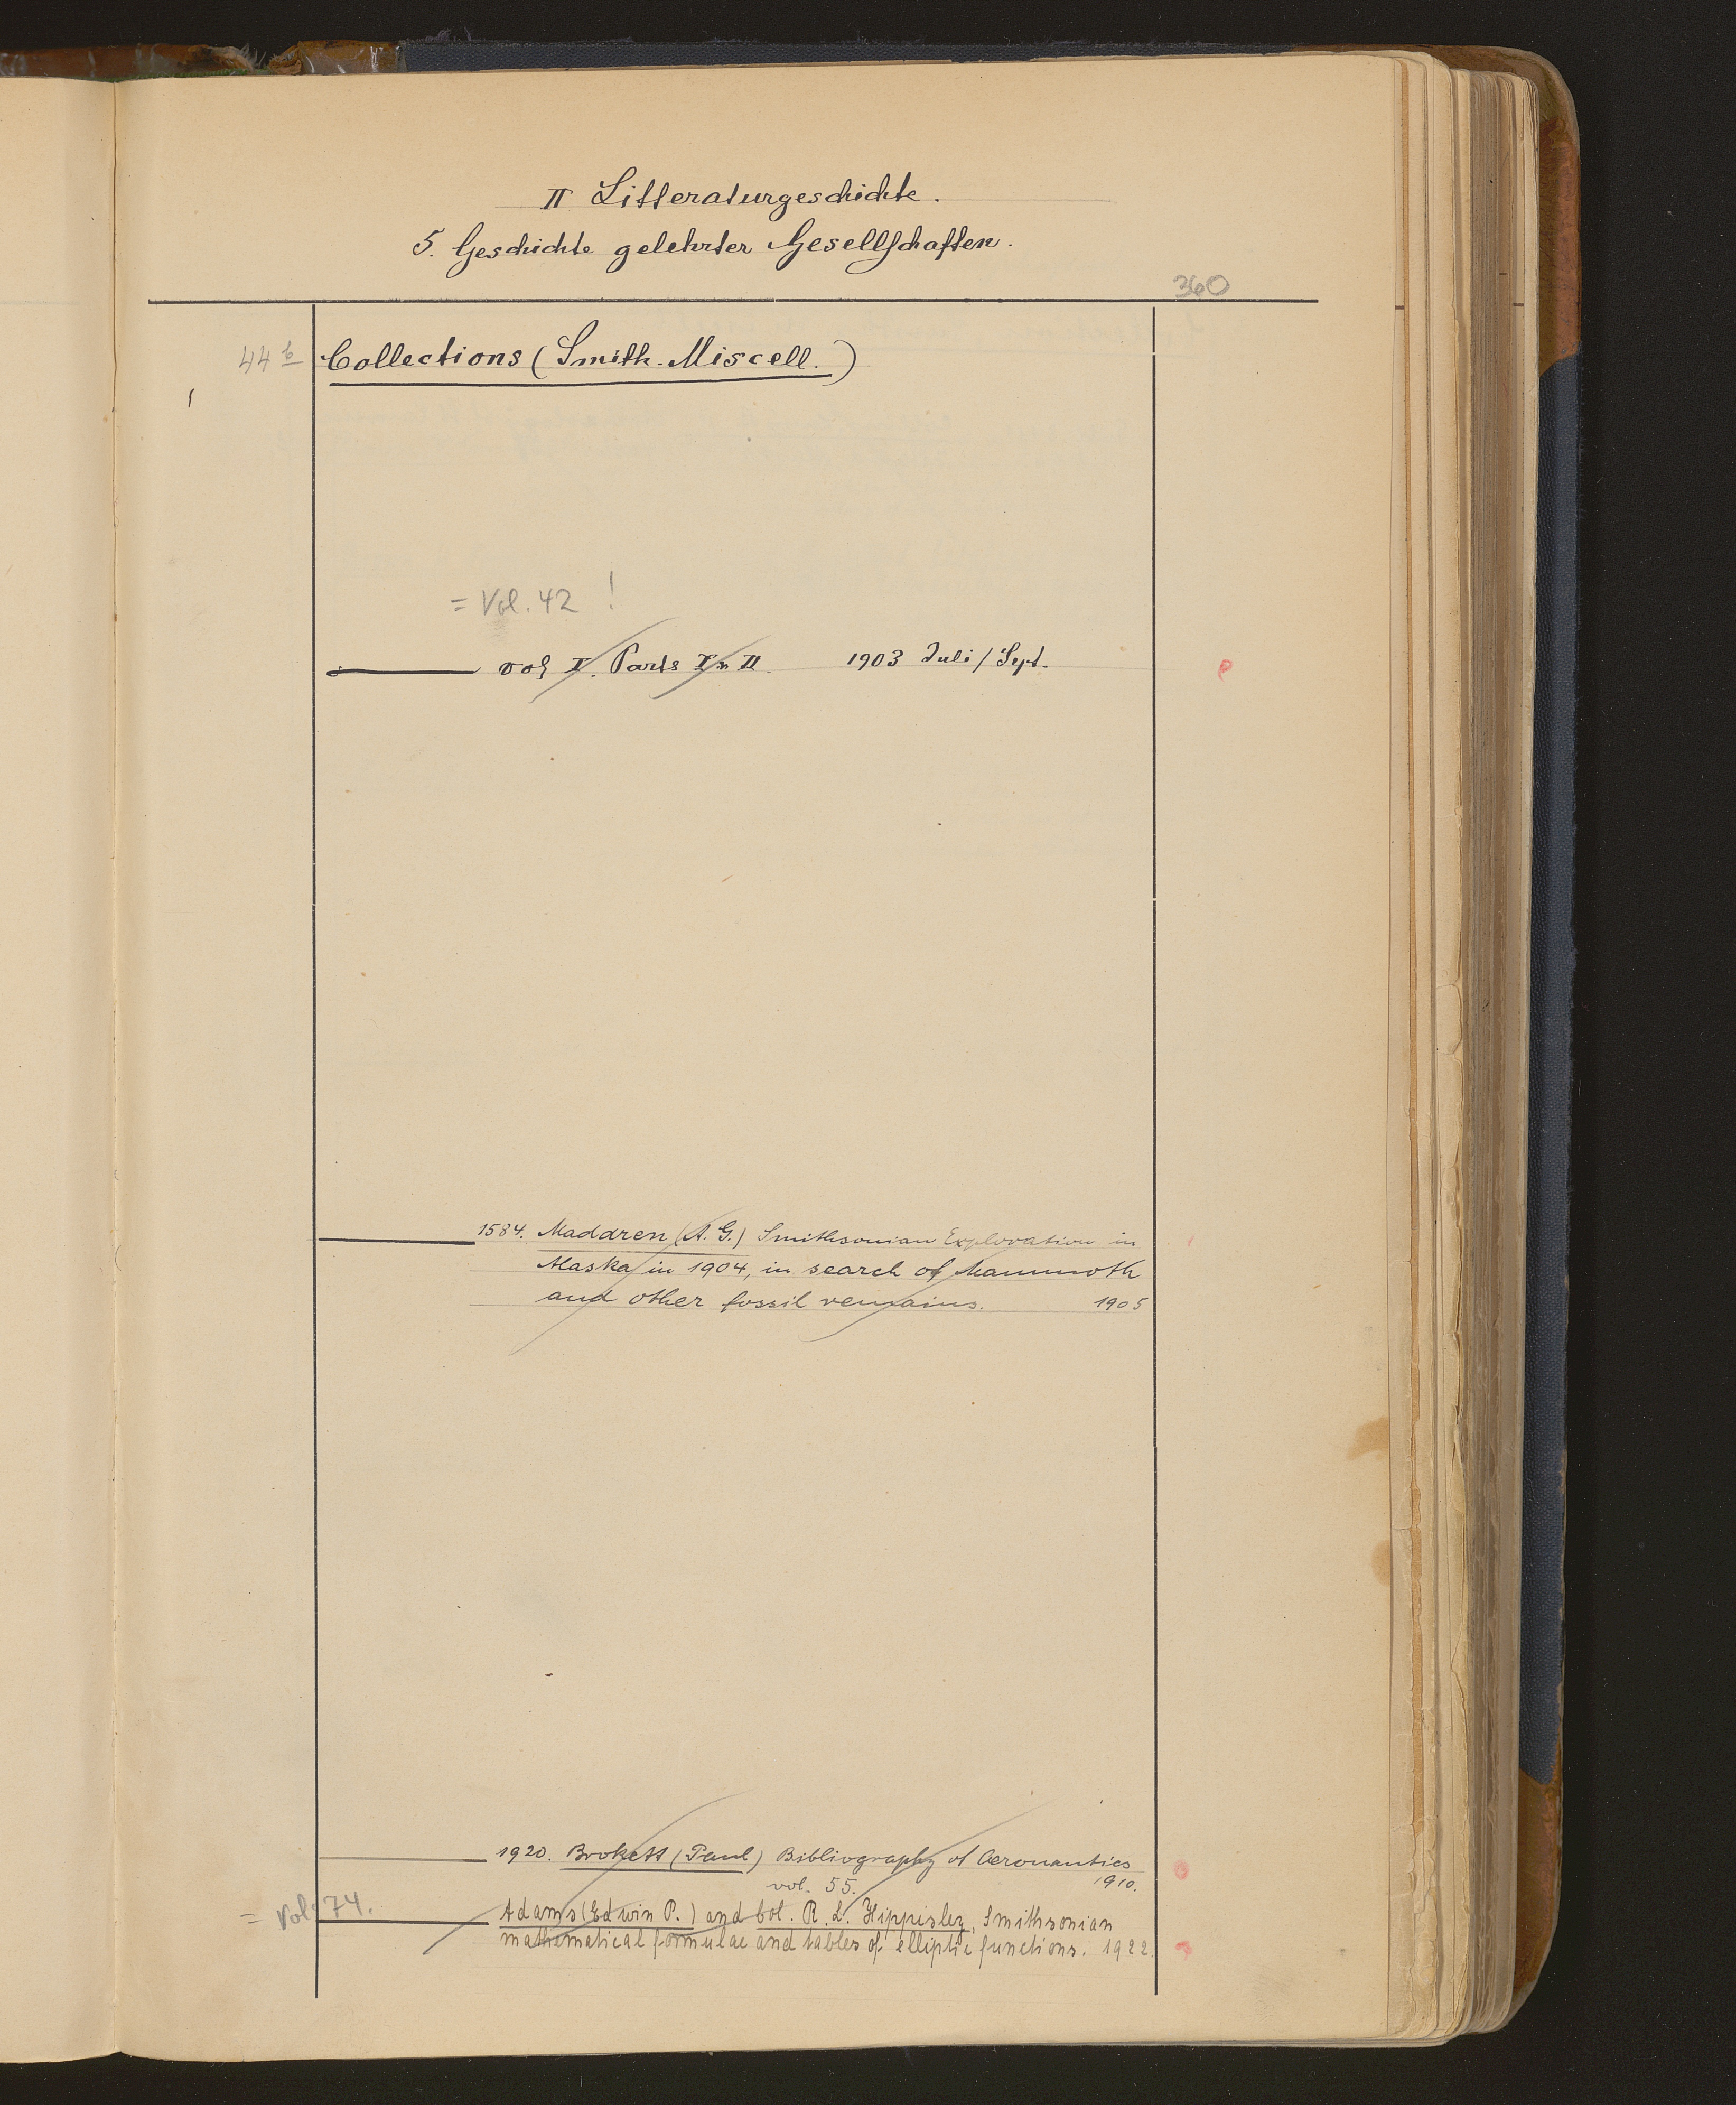 II Litteraturgeschichte.
5. Geschichte gelehrter Gesellschaften.
360
44 b Collections (Smith. Miscell.)
= Vol. 42 !
vol I. Parts I u II. 1903 Juli / Sept.
1584. Maddren (A. G.) Smithsonian Exploration in
Alaska in 1904, in search of Mammoth
and other fossil remains. 1905
1920. Brokett (Paul) Bibliography of Aeronautics
vol. 55. 1910.
= Vol. 74.
Adams (Edwin P.) and Col. R. L. Hippisley, Smithsonian
mathematical formulae and tables of elliptic functions. 1922.